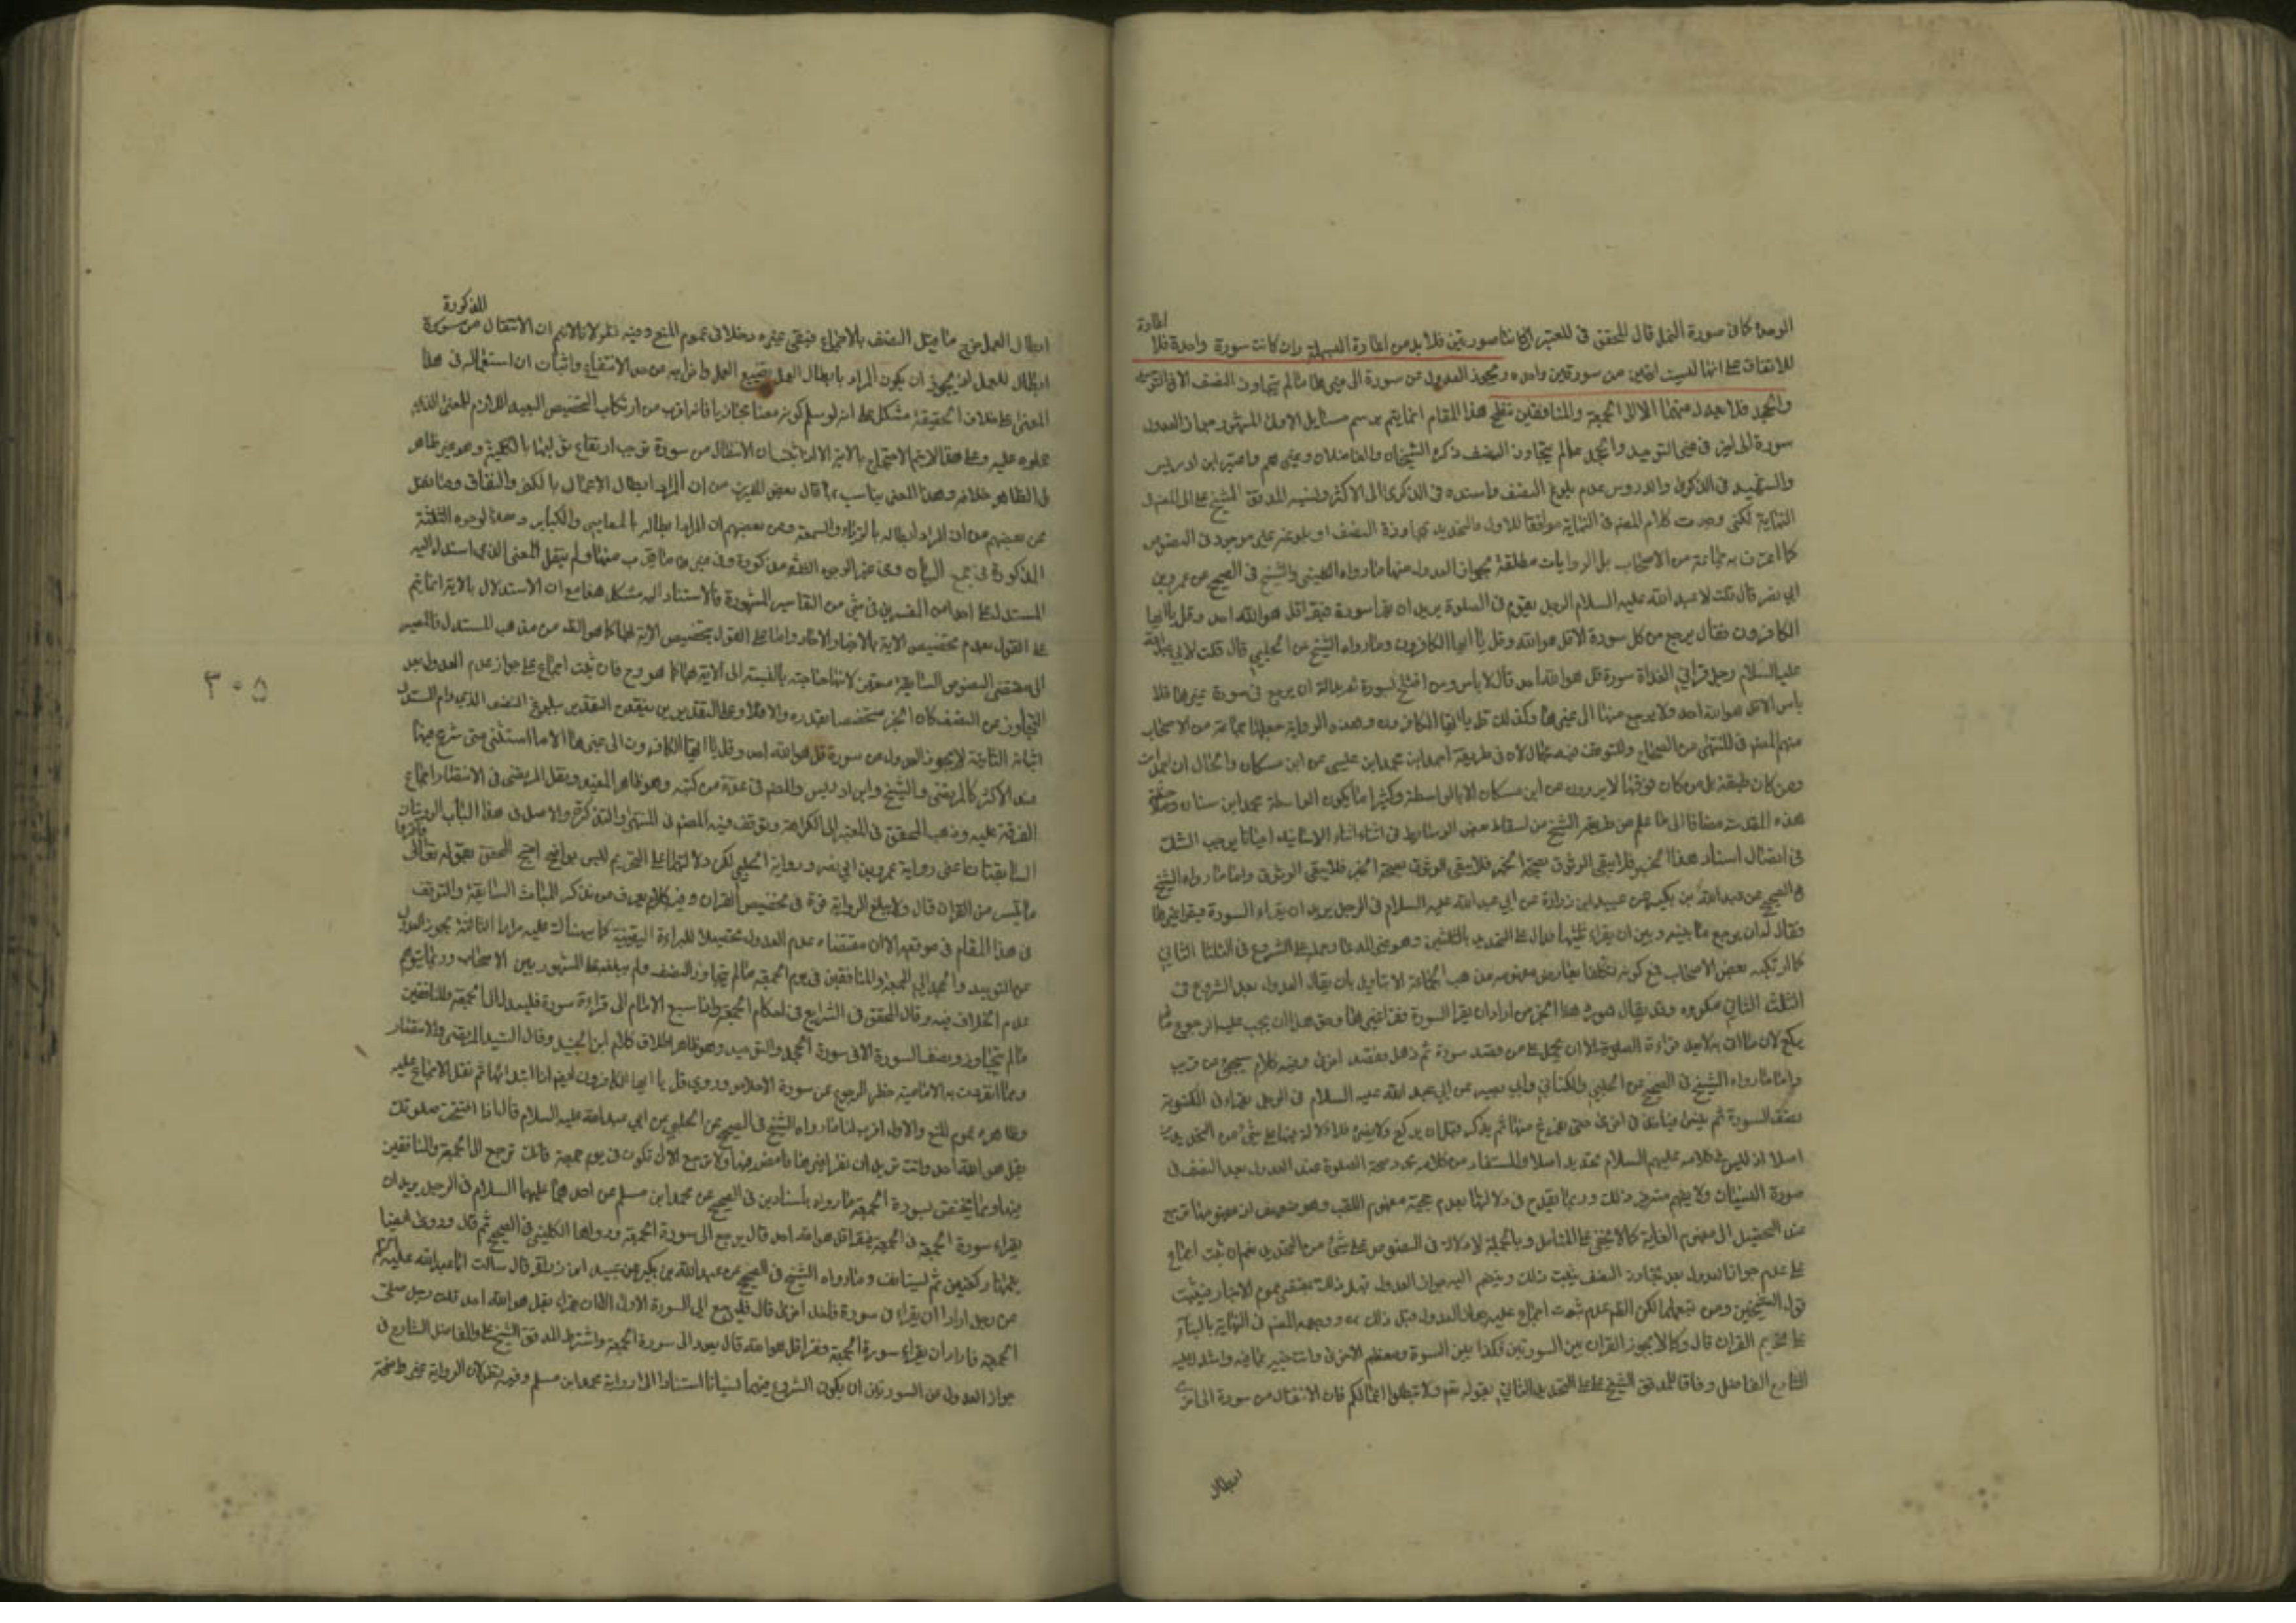 الوحدة كما في صورة النمل قال المحقق في المعتبر ان كانتا سورتين فلا بد من اعادة البسملة وان كانت سورة واحدة فلا
اعادة
للاتفاق على انها ليست ايتين من سورة واحدة ويجوز العدول من سورة الى غيرها ما لم يتجاوز النصف الا في التوحيد
والجحد فلا يعدل عنهما الا الى الجمعة والمنافقين تنقيح هذا المقام انما يتم برسم مسائل الاولى المشهور جواز العدول
سورة الى اخرى في غير التوحيد والجحد ما لم يتجاوز النصف ذكره الشيخان والفاضلان وغيرهم واعتبر ابن ادريس
والشهيد في الذكرى والدروس عدم بلوغ النصف واسنده في الذكرى الى الاكثر ونسبه المدقق الشيخ علي الى المصنف
النهاية لكني وجدت كلام المصنف في النهاية موافقا للاول والتحديد بمجاوزة النصف او بلوغه غير موجود في النصوص
كما اعترف به جماعة من الاصحاب بل الروايات مطلقة بجواز العدول منها ما رواه الكليني والشيخ في الصحيح عن عمرو بن
ابي نصر قال قلت لابي عبد الله عليه السلام الرجل يقوم في الصلوة يريد ان يقرأ سورة فيقرأ قل هو الله احد وقل يا ايها
الكافرون فقال يرجع من كل سورة الا قل هو الله وقل يا ايها الكافرون وما رواه الشيخ عن الحلبي قال قلت لابي عبد الله
عليه السلام رجل قرأ في الغداة سورة قل هو الله احد قال لا باس ومن افتتح بسورة ثم بدا له ان يرجع في سورة غيرها فلا
باس الا قل هو الله احد ولا يرجع منها الى غيرها وكذلك قل يا ايها الكافرون وهذه الرواية جعلها جماعة من الاصحاب
منهم المصنف في المنتهى من الصحاح وللتوقف فيه مجال لان في طريقه احمد ابن محمد ابن عيسى عن ابن مسكان والحال ان احمد
ومن كان طبقته بل من كان فوقها لا يروون عن ابن مسكان الا بالواسطة وكثيرا ما يكون الواسطة محمد ابن سنان
هذه المقدمة مضافا الى ما علم من طريقة الشيخ من اسقاط بعض الوسائط في اثناء الاسانيد احيانا يوجب الشك
في اتصال اسناد هذا الخبر فلا يبقى الوثوق بصحة الخبر فلا يبقى الوثوق بصحة الخبر واما ما رواه الشيخ
في الصحيح عن عبد الله بن بكير عن عبيد ابن زرارة عن ابي عبد الله عليه السلام في الرجل يريد ان يقراء السورة فيقرا غيرها
فقال له ان يرجع ما بينه وبين ان يقراء ثلثيها فدال على التحديد بالثلثين وهو غير المدعا وحمله على الشروع في الثلث الثاني
كما ارتكبه بعض الاصحاب مع كونه تكلفا
الثلث الثاني مكروه وقد يقال
يركع
واما ما رواه الشيخ في الصحيح عن الحلبي والكناني وابي بصير عن ابي عبد الله عليه السلام في الرجل يقراء في المكتوبة
بنصف السورة ثم ينسى فياخذ في اخرى حتى يفرغ منها ثم يذكر قبل ان يركع قال يركع ولا يضره فلا دلالة فيها على شيء من التحديد
اصلا اذ ليس في كلامه عليهم السلام تحديد اصلا والمستفاد من كلامه مجرد صحة الصلوة عند العدول بعد النصف في
صورة النسيان ولا يفهم منه غير ذلك وربما يقدح في دلالتها بعدم حجية مفهوم اللقب وهو ضعيف
عند التحصيل الى مفهوم الغاية كما لا يخفى على المتامل وبالجملة لا دلالة في النصوص على شيء من التحديد نعم ان ثبت اجماع
على عدم جواز العدول بعد تجاوز النصف يثبت ذلك وينضم اليه جواز العدول قبل ذلك بمقتضى عموم الاخبار فيثبت
قول الشيخين ومن تبعهما لكن الظاهر عدم ثبوت اجماع عليه بجواز العدول قبل ذلك ووجهه المصنف في النهاية بالبناء
على تحريم القران قال وكما لا يجوز القران بين السورتين فكذا بين السورة ومعظم الاخرى وانت خبير بما فيه واستدل عليه
الشارح الفاضل وفاقا للمدقق الشيخ علي على التحديد الثاني بقوله تعالى ولا تبطلوا اعمالكم فان الانتقال من سورة الى اخرى
ابطال
المذكورة
ابطال العمل خرج ما قبل النصف بالاجماع فيبقى غيره داخلا في عموم المنع وفيه نظر لانا لا نسلم ان الانتقال من سورة
ابطال للعمل اذ يجوز ان يكون المراد بابطال العمل تضييع العمل واخراجه عن حد الانتفاع واثبات ان استعماله في هذا
المعنى على خلاف الحقيقة مشكل على انه لو سلم كونه معنا مجازيا فانه اقرب من ارتكاب التخصيص البعيد اللازم للمعنى الذي
حملوه عليه وعلى هذا لا يتم الاحتجاج بالاية الا اذا ثبت ان الانتقال من سورة توجب ارتفاع ثوابها بالكلية وهو غير ظاهر
بل الظاهر خلافه وهذا المعنى يناسب ما قال بعض المفسرين من ان المراد ابطال الاعمال بالكفر والنفاق وما نقل
عن بعضهم من ان المراد ابطاله بالرياء والسمعة وعن بعضهم ان المراد ابطاله بالمعاصي والكباير وهذه الوجوه الثلثة
المذكورة في مجمع البيان
المستدل على احد من المفسرين في شيء من التفاسير المشهورة فالاستناد اليه مشكل هذا مع ان الاستدلال بالاية انما يتم
على القول بعدم تخصيص الاية بالاخبار الاحاد واما على القول بتخصيص الاية بها كما هو الظاهر من مذهب المستدل فالمصير
الى مقتضى النصوص السابقة متعين لانها خاصة بالنسبة الى الاية
التجاوز عن النصف كان الخبر مخصصا بقدره والا فلا وعلى التقديرين يتنفى التقدير ببلوغ النصف الذي رام المستدل
اثباته الثانية لا يجوز العدول من سورة قل هو الله احد وقل يا ايها الكافرون الى غيرها الا ما استثنى متى شرع فيهما
عند الاكثر كالمرتضى والشيخ وابن ادريس والمصنف في عدة من كتبه وهو ظاهر المفيد ونقل المرتضى في الانتصار اجماع
الفرقة عليه وذهب المحقق في المعتبر الى الكراهة وتوقف فيه المصنف في المنتهى والتذكرة والاصل في هذا الباب الروايتان
السابقتان اعني رواية عمرو بن ابي نصر ورواية الحلبي لكن دلالتهما على التحريم ليس بواضح احتج المحقق بقوله تعالى
ما تيسر من القران قال ولا يبلغ الرواية قوة في تخصيص القران وفيه كلام يعرف من تذكر المباحث السابقة والتوقف
في هذا المقام في موقعه الا ان مقتضاه عدم العدول تحصيلا للبراءة اليقينية كما نبهنا عليه مرارا الثالثة يجوز العدول
عن التوحيد والجحد الى الجمعة والمنافقين في يوم الجمعة ما لم يتجاوز النصف ولم يبلغه على المشهور بين الاصحاب وربما يتوهم
عدم الخلاف فيه وقال المحقق في الشرايع في احكام الجمعة واذا سبق الامام الى قراءة سورة فليعدل الى الجمعة والمنافقين
ما لم يتجاوز نصف السورة الا في سورة الجحد والتوحيد وهو ظاهر اطلاق كلام ابن الجنيد وقال السيد المرتضى في الانتصار
ومما انفردت به الامامية حظر الرجوع عن سورة الاخلاص وروي قل يا ايها الكافرون ايضا اذا ابتدا بها ثم نقل الاجماع عليه
وظاهره عموم المنع والاول اقرب لنا ما رواه الشيخ في الصحيح عن الحلبي عن ابي عبد الله عليه السلام قال اذا افتتحت صلوتك
بقل هو الله احد وانت تريد ان تقرا غيرها فامض فيها ولا ترجع الا ان تكون في يوم جمعة فانك ترجع الى الجمعة والمنافقين
منها ومما يختص بسورة الجمعة ما رواه باسنادين في الصحيح عن محمد ابن مسلم عن احدهما عليهما السلام في الرجل يريد ان
يقراء سورة الجمعة في الجمعة فيقرا قل هو الله احد قال يرجع الى سورة الجمعة ورواها الكليني في الصحيح ثم قال وروي ايضا
يتمها ركعتين ثم يستانف وما رواه الشيخ في الصحيح عن عبد الله بن بكير عن عبيد ابن زرارة قال سالت ابا عبد الله عليه السلام
عن رجل اراد ان يقراء في سورة فاخذ في اخرى قال فليرجع الى السورة الاولى الا ان يقراء بقل هو الله احد قلت رجل صلى
الجمعة فاراد ان يقراء سورة الجمعة فقرا قل هو الله قال يعود الى سورة الجمعة واشترط المدقق الشيخ علي والفاضل الشارح في
جواز العدول من السورتين ان يكون الشروع فيهما نسيانا استنادا الى رواية محمد ابن مسلم وفيه نظر لان الرواية غير واضحة
٣٠٥